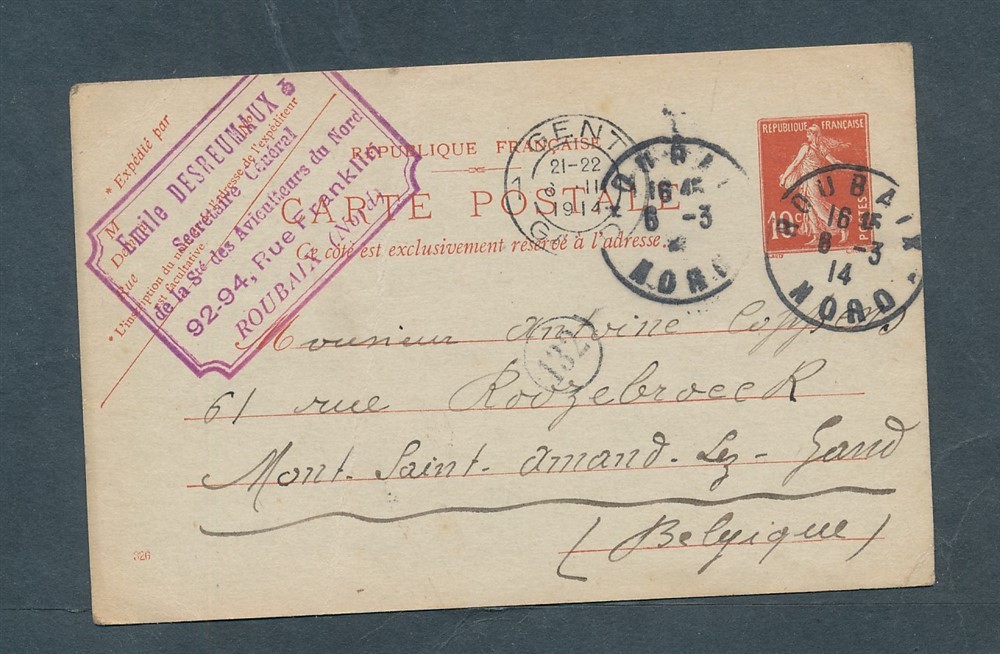 Emile DESREUMAUX
Secrétaire Général
de la Sté des Aviculteurs du Nord
92-94, Rue Franklin
ROUBAIX (Nord)
* Expédié par
M
Demeurant
Rue
* L'inscription du nom et de l'adresse de l'expéditeur
est facultative
RÉPUBLIQUE FRANÇAISE
CARTE POSTALE
Ce côté est exclusivement réservé à l'adresse.
GENT
21-22
1914
16
6 -3
NORD
REPUBLIQUE FRANÇAISE
10 c
POSTES
ROUBAIX
16 45
6 -3
14
NORD
132
Monsieur Antoine
61 rue Roozebroeck
Mont-Saint-Amand-Lez-Gand
(Belgique)
326